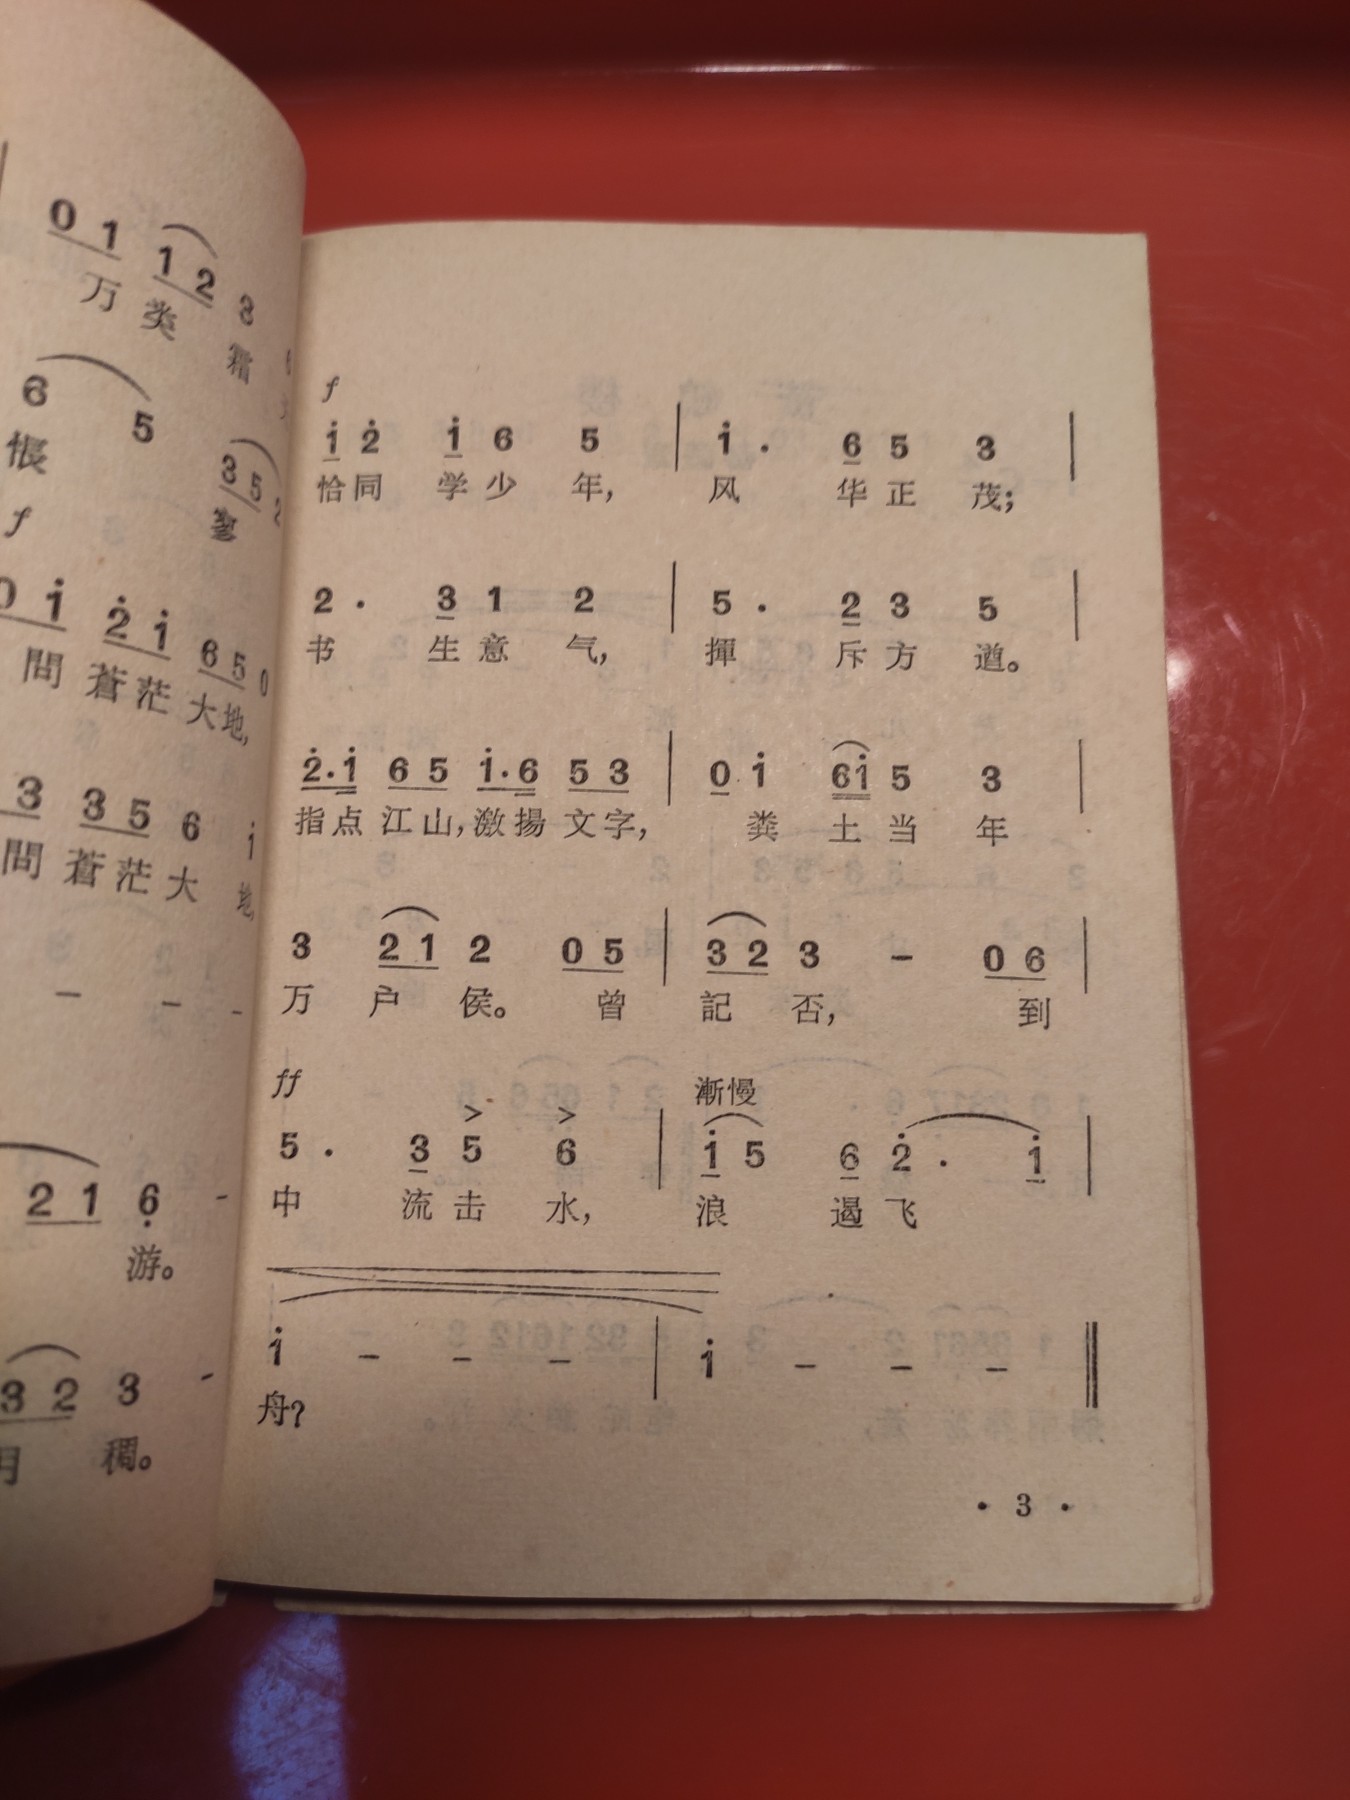 0 1 1 2 3
万 类 霜
6 5
悵 3 5
f 寥
0 i̇ 2̇ i̇ 6 5 0
問 蒼 茫 大 地,
3 3 5 6 i̇
問 蒼 茫 大 地,
– – –
2 1 6̣ –
游。
3 2 3 –
月 稠。
f
i̇ 2̇ i̇ 6 5 | i̇ · 6 5 3 |
恰 同 学 少 年, 风 华 正 茂;
2 · 3 1 2 | 5 · 2 3 5 |
书 生 意 气, 揮 斥 方 遒。
2̇ · i̇ 6 5 i̇ · 6 5 3 | 0 i̇ 6 i̇ 5 3 |
指 点 江 山, 激 揚 文 字, 粪 土 当 年
3 2 1 2 0 5 | 3 2 3 – 0 6 |
万 户 侯。 曾 記 否, 到
ff 漸慢
5 · 3 5 6 | i̇ 5 6 2̇ · i̇ |
中 流 击 水, 浪 遏 飞
i̇ – – – | i̇ – – – ‖
舟?
· 3 ·